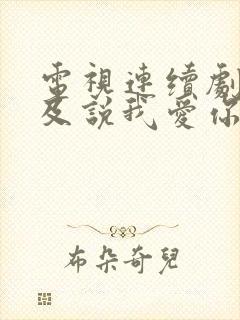 電視連續劇
及說我愛你
布朵奇兒